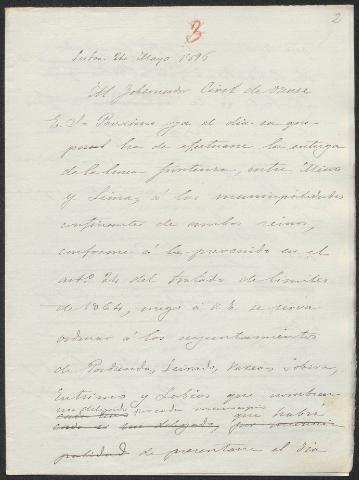 3
2
Lisboa 24 Mayo 1896
Al Gobernador Civil de Orense
E. S. Proximo ya el dia en que
ha de efectuarse la entrega
de la linea fronteriza, entre Miño
y Limia, á los municipalidades
confinantes de ambos reinos,
conforme á lo prevenido en el
artº. 24 del tratado de limites
de 1864, ruego á V. E. se sirva
ordenar á los ayuntamientos
de Padrenda, Lobera,
Entrimo y Lobios que nombren
un delegado por cada municipio
que habrá
de presentarse el dia